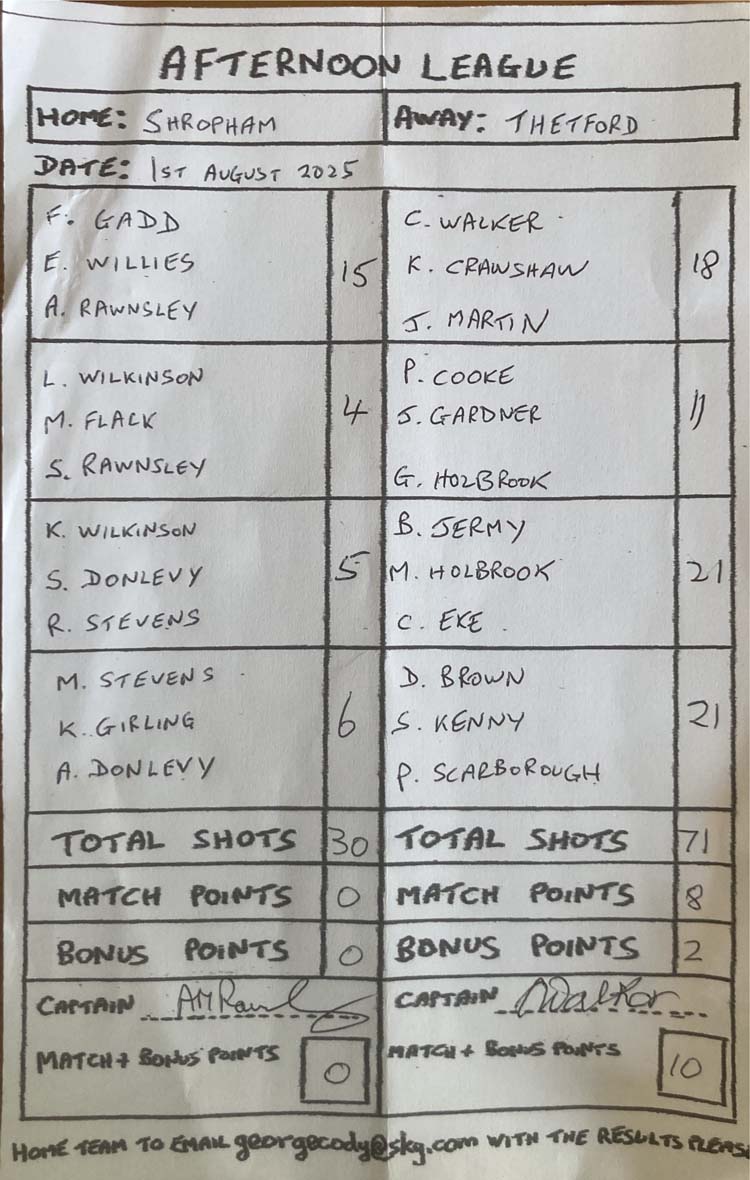 AFTERNOON LEAGUE
HOME: SHROPHAM
AWAY: THETFORD
DATE: 1ST AUGUST 2025
F. GADD
E. WILLIES
A. RAWNSLEY
15
C. WALKER
K. CRAWSHAW
J. MARTIN
18
L. WILKINSON
M. FLACK
S. RAWNSLEY
4
P. COOKE
J. GARDNER
G. HOLBROOK
11
K. WILKINSON
S. DONLEVY
R. STEVENS
5
B. JERMY
M. HOLBROOK
C. EKE
21
M. STEVENS
K. GIRLING
A. DONLEVY
6
D. BROWN
S. KENNY
P. SCARBOROUGH
21
TOTAL SHOTS 30
TOTAL SHOTS 71
MATCH POINTS 0
MATCH POINTS 8
BONUS POINTS 0
BONUS POINTS 2
CAPTAIN
CAPTAIN CWalker
MATCH + BONUS POINTS 0
MATCH + BONUS POINTS 10
HOME TEAM TO EMAIL georgecody@skg.com WITH THE RESULTS PLEAS